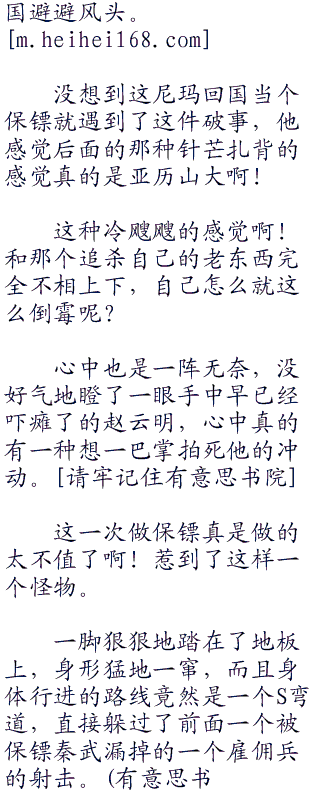 国避避风头。
[m.heihei168.com]
没想到这尼玛回国当个
保镖就遇到了这件破事，他
感觉后面的那种针芒扎背的
感觉真的是亚历山大啊！
这种冷飕飕的感觉啊！
和那个追杀自己的老东西完
全不相上下，自己怎么就这
么倒霉呢？
心中也是一阵无奈，没
好气地瞪了一眼手中早已经
吓瘫了的赵云明，心中真的
有一种想一巴掌拍死他的冲
动。[请牢记住有意思书院]
这一次做保镖真是做的
太不值了啊！惹到了这样一
个怪物。
一脚狠狠地踏在了地板
上，身形猛地一窜，而且身
体行进的路线竟然是一个S弯
道，直接躲过了前面一个被
保镖秦武漏掉的一个雇佣兵
的射击。(有意思书